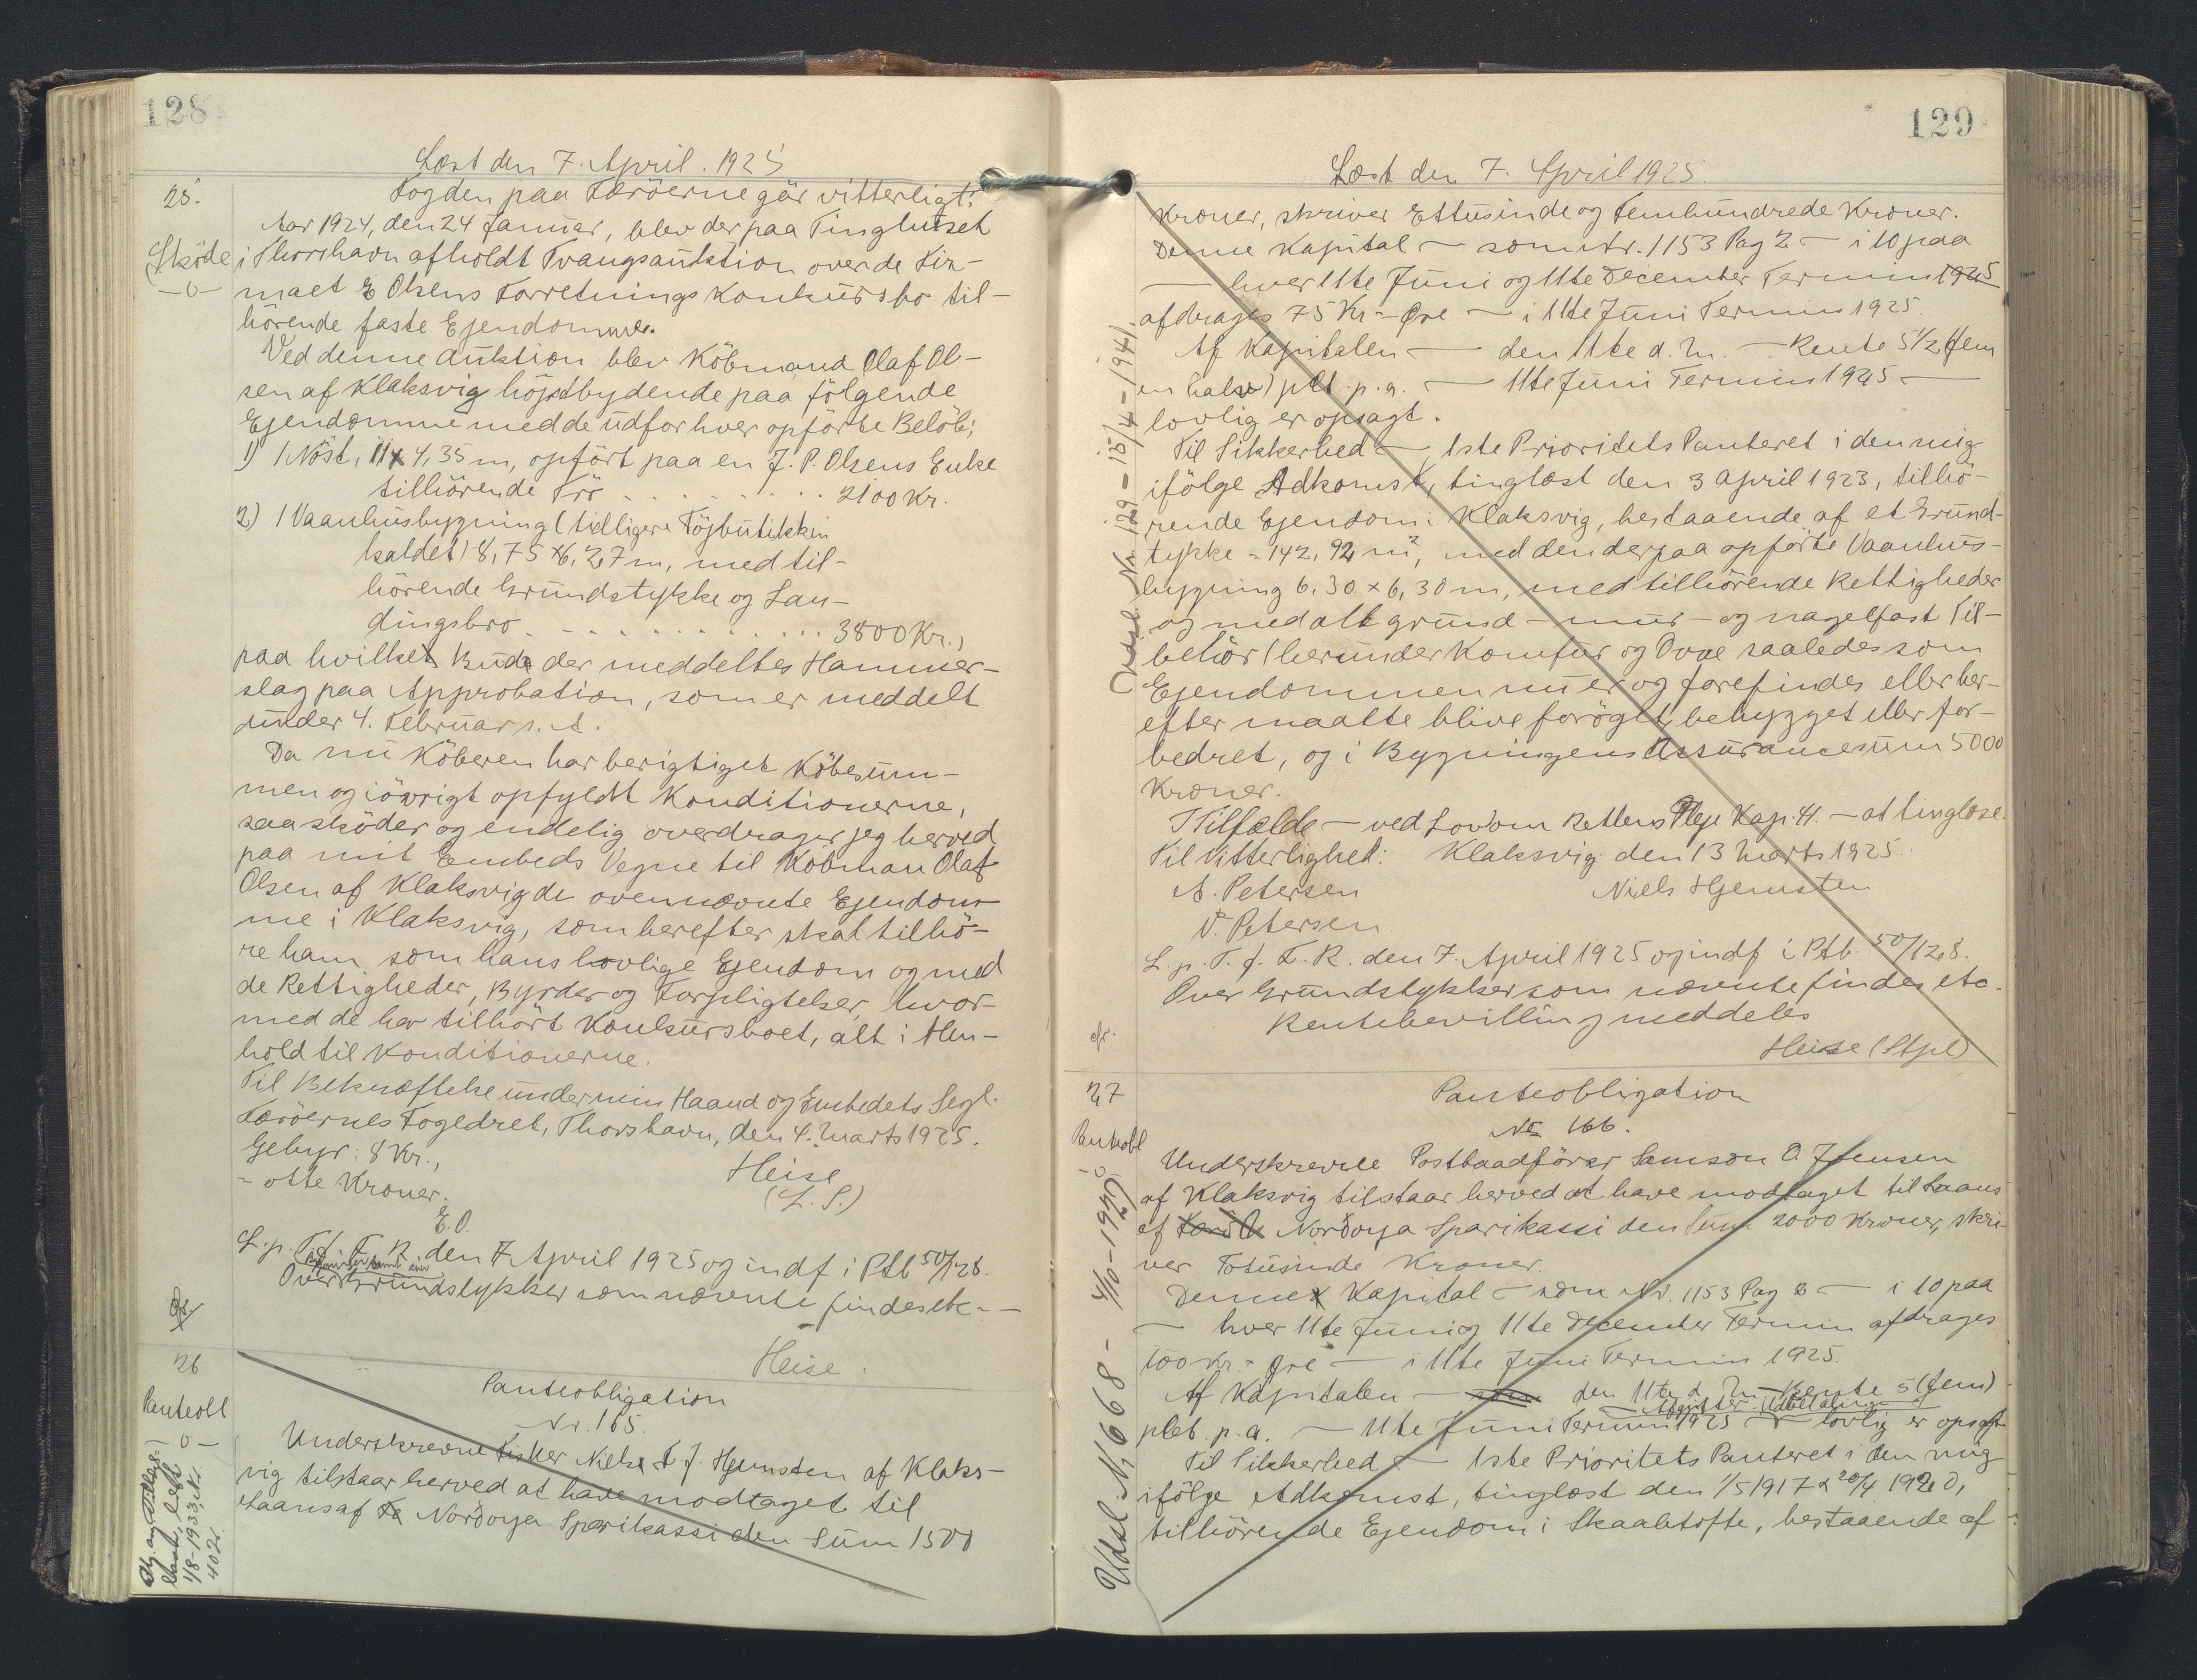 128
Læst den 7. April. 1925
25.
Skøde
-0-
Fogden paa Færöerne gör vitterligt:
Aar 1924, den 24 Januar, blev der paa Tinghuset
i Thorshavn afholdt Tvangsauktion over de Fir-
maet E Olsens Forretnings Konkursbo til-
hörende faste Ejendomme.
Ved denne Auktion blev Köbmand Olaf Ol-
sen af Klaksvig höjstbydende paa fölgende
Ejendomme med de udfor hver opförte Belöb:
1) 1 Nöst, 11 x 4,35 m, opfört paa en J. P. Olsens Enke
tilhörende Trö . . . . . . . . . 2100 Kr.
2) 1 Vaanhusbygning (tidligere Töjbutikken
kaldet) 8,75 x 6,27 m, med til-
hörende Grundstykke og Lan-
dingsbro . . . . . . . . . . . . 3800 Kr.,
paa hvilket Bude der meddeltes Hammer-
slag paa Approbation, som er meddelt
under 4. Februar s. A.
Da nu Köberen har berigtiget Köbesum-
men og iövrigt opfyldt Konditionerne,
saa sköder og endelig overdrager jeg herved
paa mit Embeds Vegne til Köbman Olaf
Olsen af Klaksvig de ovennævnte Ejendom-
me i Klaksvig, som herefter skal tilhö-
re ham som hans lovlige Ejendom og med
de Rettigheder, Byrder og Forpligtelser, hvor-
med de har tilhört Konkursboet, alt i Hen-
hold til Konditionerne.
Til Bekræftelse under min Haand og Embedets Segl.
Færöernes Fogedret, Thorshavn, den 4. Marts 1925.
Gebyr: 8 Kr.,
- otte Kroner.
Heise
(L. S.)
E.O.
L. p. T. f. F. R. den 7 April 1925 og indf i Ptb 50/128.
Over Grundstykker som nævnte findes etc. -
Heise.
26
Panteobl
-0-
1/8-1933, Nr.
402.
Panteobligation
Nr. 165.
Underskrevne Fisker Niels F. J. Hjemsten af Klaks-
vig tilstaar herved at have modtaget til
Laans af Nordoya Sparikassi den Sum 1500
129
Læst den 7. April 1925.
Kroner, skriver Ettusinde og Femhundrede Kroner.
Denne Kapital - som Nr. 1153 Pag 2 - i 10 paa
- hver 11te Juni og 11te December Termin 1925
afdrages 75 Kr - Øre - i 11te Juni Termin 1925.
Af Kapitalen - den 11te d. M. - Rente 5 1/2 (fem
en halv) pCt. p. a. - 11te Juni Termin 1925 -
lovlig er opsagt.
Til Sikkerhed - 1ste Prioritets Panteret i den mig
ifölge Adkomst, tinglæst den 3 April 1923, tilhö-
rende Ejendom i Klaksvig, bestaaende af et Grund-
stykke = 142,92 m², med den derpaa opförte Vaanhus-
bygning 6,30 x 6,30 m, med tilhörende Rettigheder
og med alt grund- mur- og nagelfast Til-
behör (herunder Komfur og Ovne saaledes som
Ejendommen nu er og forefindes eller her-
efter maatte blive foröget, bebygget eller for-
bedret, og i Bygningens Assurancesum 5000
Kroner.
I Tilfælde - ved Lov om Rettens Pleje Kap. 41. - at tinglæse.
Til Vitterlighed: Klaksvig den 13 Marts 1925.
A. Petersen
Niels Hjemsten
V. Petersen.
L. p. T. f. F. R. den 7. April 1925 og indf i Ptb. 50/128.
Over Grundstykker som nævnte findes etc.
Rentebevilling meddeles
Heise (Stpl)
Udsl. Nr. 129 - 15/4 - 1941.
27
Panteobl
-0-
Panteobligation
Nr. 166.
Underskrevne Postbaadförer Samson O. Joensen
af Klaksvig tilstaar herved at have modtaget til Laans
af Nordoya Sparikassi den Sum 2000 Kroner, skri-
ver Totusinde Kroner.
Denne Kapital - som Nr. 1153 Pag 2 - i 10 paa
- hver 11te Juni og 11te December Termin afdrages
100 Kr - Øre - i 11te Juni Termin 1925.
Af Kapitalen - den 11te d. M - Rente 5 (fem)
pCt. p. a. - 11te Juni Termin 1925 - lovlig er opsagt
Til Sikkerhed - 1ste Prioritets Panteret i den mig
ifölge Adkomst, tinglæst den 1/5 1917 & 20/4 1920,
tilhörende Ejendom i Skaaletofte, bestaaende af